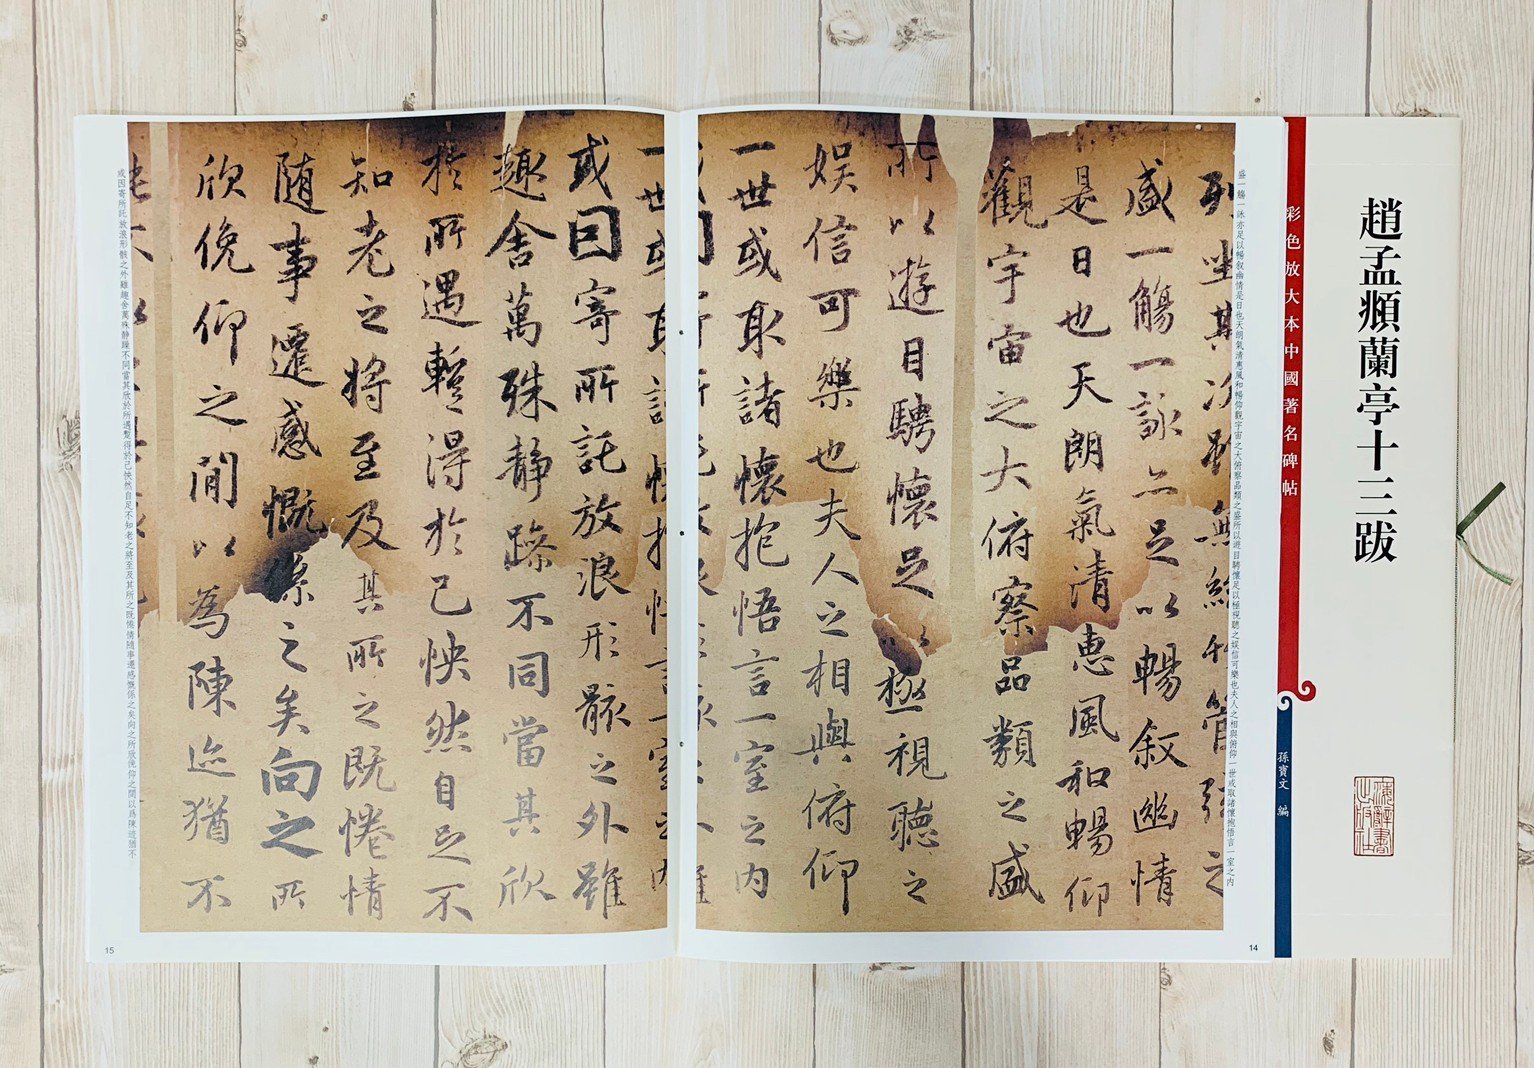 趙孟頫蘭亭十三跋
彩色放大本中國著名碑帖
孫寶文 編
盛一觴一詠亦足以暢叙幽情是日也天朗氣清惠風和暢仰觀宇宙之大俯察品類之盛所以遊目騁懷足以極視聽之娛信可樂也夫人之相與俯仰一世或取諸懷抱悟言一室之内
列坐其次雖無絲竹管弦之
盛一觴一詠亦足以暢叙幽情
是日也天朗氣清惠風和暢仰
觀宇宙之大俯察品類之盛
所以遊目騁懷足以極視聽之
娛信可樂也夫人之相與俯仰
一世或取諸懷抱悟言一室之内
14
一世或取諸懷抱悟言一室之内
或因寄所託放浪形骸之外雖
趣舍萬殊静躁不同當其欣
於所遇暫得於己怏然自足不
知老之將至及其所之既惓情
隨事遷感慨係之矣向之所
欣俛仰之閒以為陳迹猶不
或因寄所託放浪形骸之外雖趣舍萬殊静躁不同當其欣於所遇暫得於己怏然自足不知老之將至及其所之既惓情隨事遷感慨係之矣向之所欣俛仰之閒以爲陳迹猶不
15